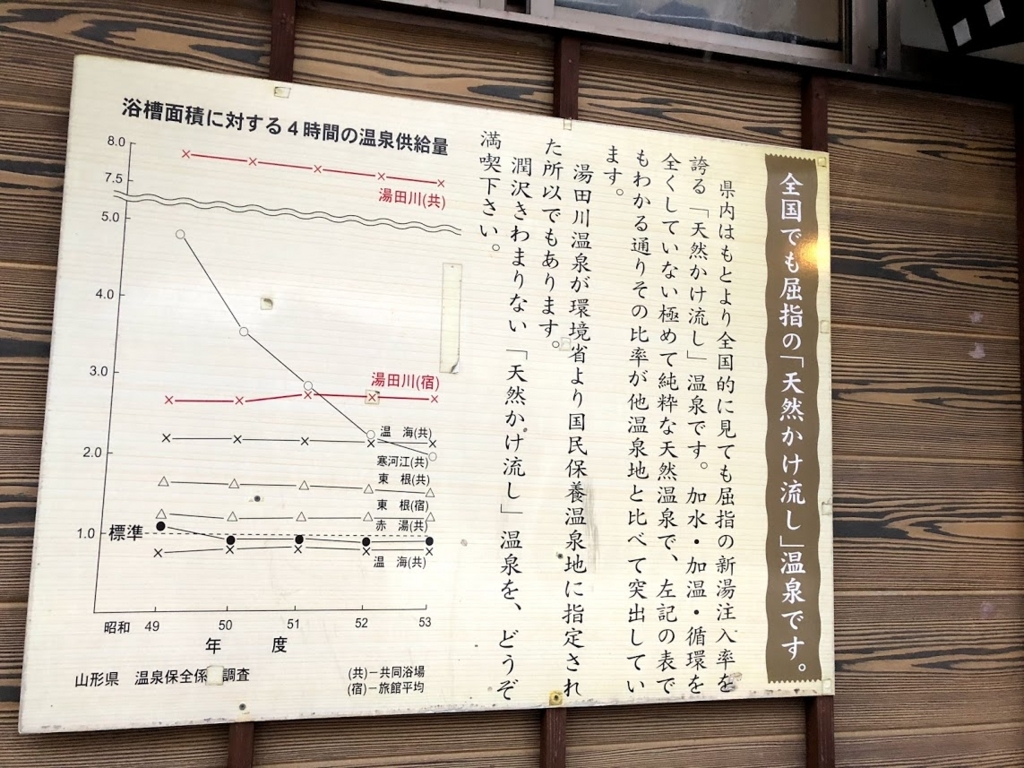 全国でも屈指の「天然かけ流し」温泉です。
県内はもとより全国的に見ても屈指の新湯注入率を
誇る「天然かけ流し」温泉です。加水・加温・循環を
全くしていない極めて純粋な天然温泉で、左記の表で
もわかる通りその比率が他温泉地と比べて突出してい
ます。
湯田川温泉が環境省より国民保養温泉地に指定され
た所以でもあります。
潤沢きわまりない「天然かけ流し」温泉を、どうぞ
満喫下さい。
浴槽面積に対する4時間の温泉供給量
8.0
7.5
湯田川(共)
5.0
4.0
3.0
湯田川(宿)
温 海(共)
2.0
寒河江(共)
東 根(共)
東 根(宿)
赤 湯(共)
標準 1.0
温 海(共)
昭和 49 50 51 52 53
年 度
山形県 温泉保全係 調査
(共)−共同浴場
(宿)−旅館平均